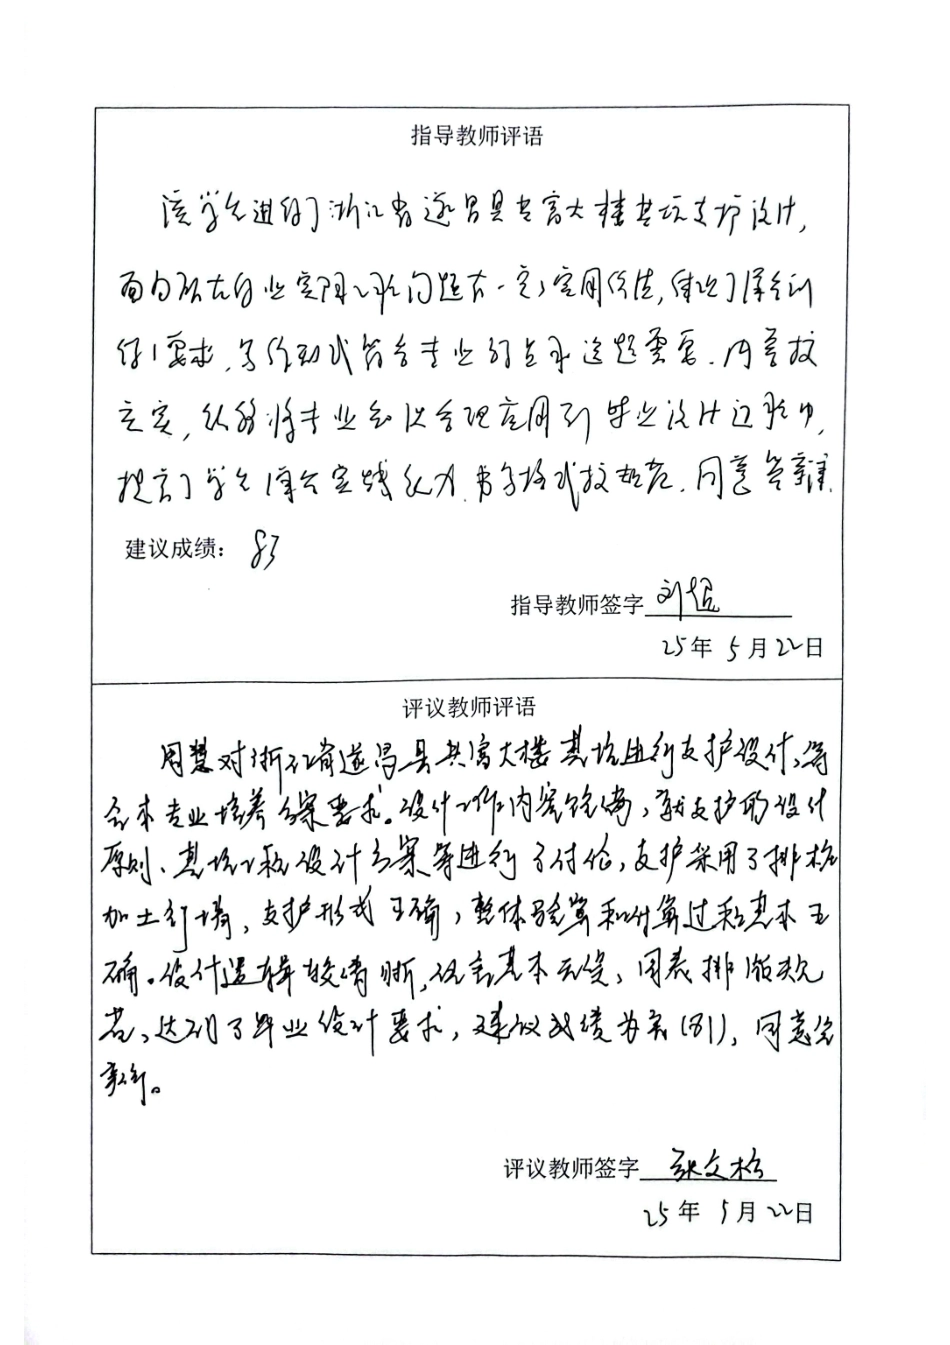 指导教师评语
该学生进行了浙江省遂昌县共富大楼基坑支护设计,
面向所在行业实际工程问题有一定实用价值,体现了综合训
练要求,写作形式符合专业特点和选题需要.内容较
充实,能够将专业知识合理应用到毕业设计过程中,
提高了学生综合实践能力.书写格式较规范.同意答辩.
建议成绩: 83
指导教师签字
25年5月22日
评议教师评语
周慧对浙江省遂昌县共富大楼基坑进行支护设计,符
合本专业培养方案要求。设计工作内容完备,就支护的设计
原则、基坑工程设计方案等进行了讨论,支护采用了排桩
加土钉墙,支护形式正确,整体验算和计算过程基本正
确。设计逻辑较清晰,语言基本无误,图表排版较规
范,达到了毕业设计要求,建议成绩为良(81),同意答
辩。
评议教师签字 张文杉
25年5月22日